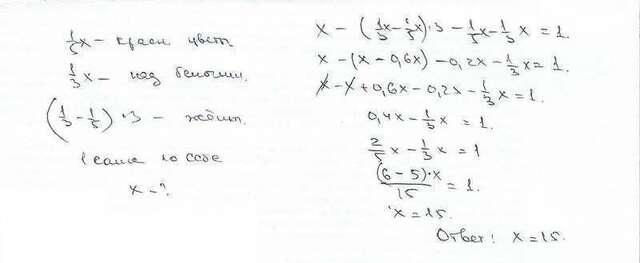 1/5x – красн. цвет.
1/3x – над белыми.
(1/3 – 1/5) · 3 – жёлт.
1 сама по себе
x – ?
x – (1/3x – 1/5x) · 3 – 1/5x – 1/3x = 1.
x – (x – 0,6x) – 0,2x – 1/3x = 1.
x – x + 0,6x – 0,2x – 1/3x = 1.
0,4x – 1/3x = 1.
2/5x – 1/3x = 1
(6 – 5)·x/15 = 1.
x = 15.
Ответ: x = 15.